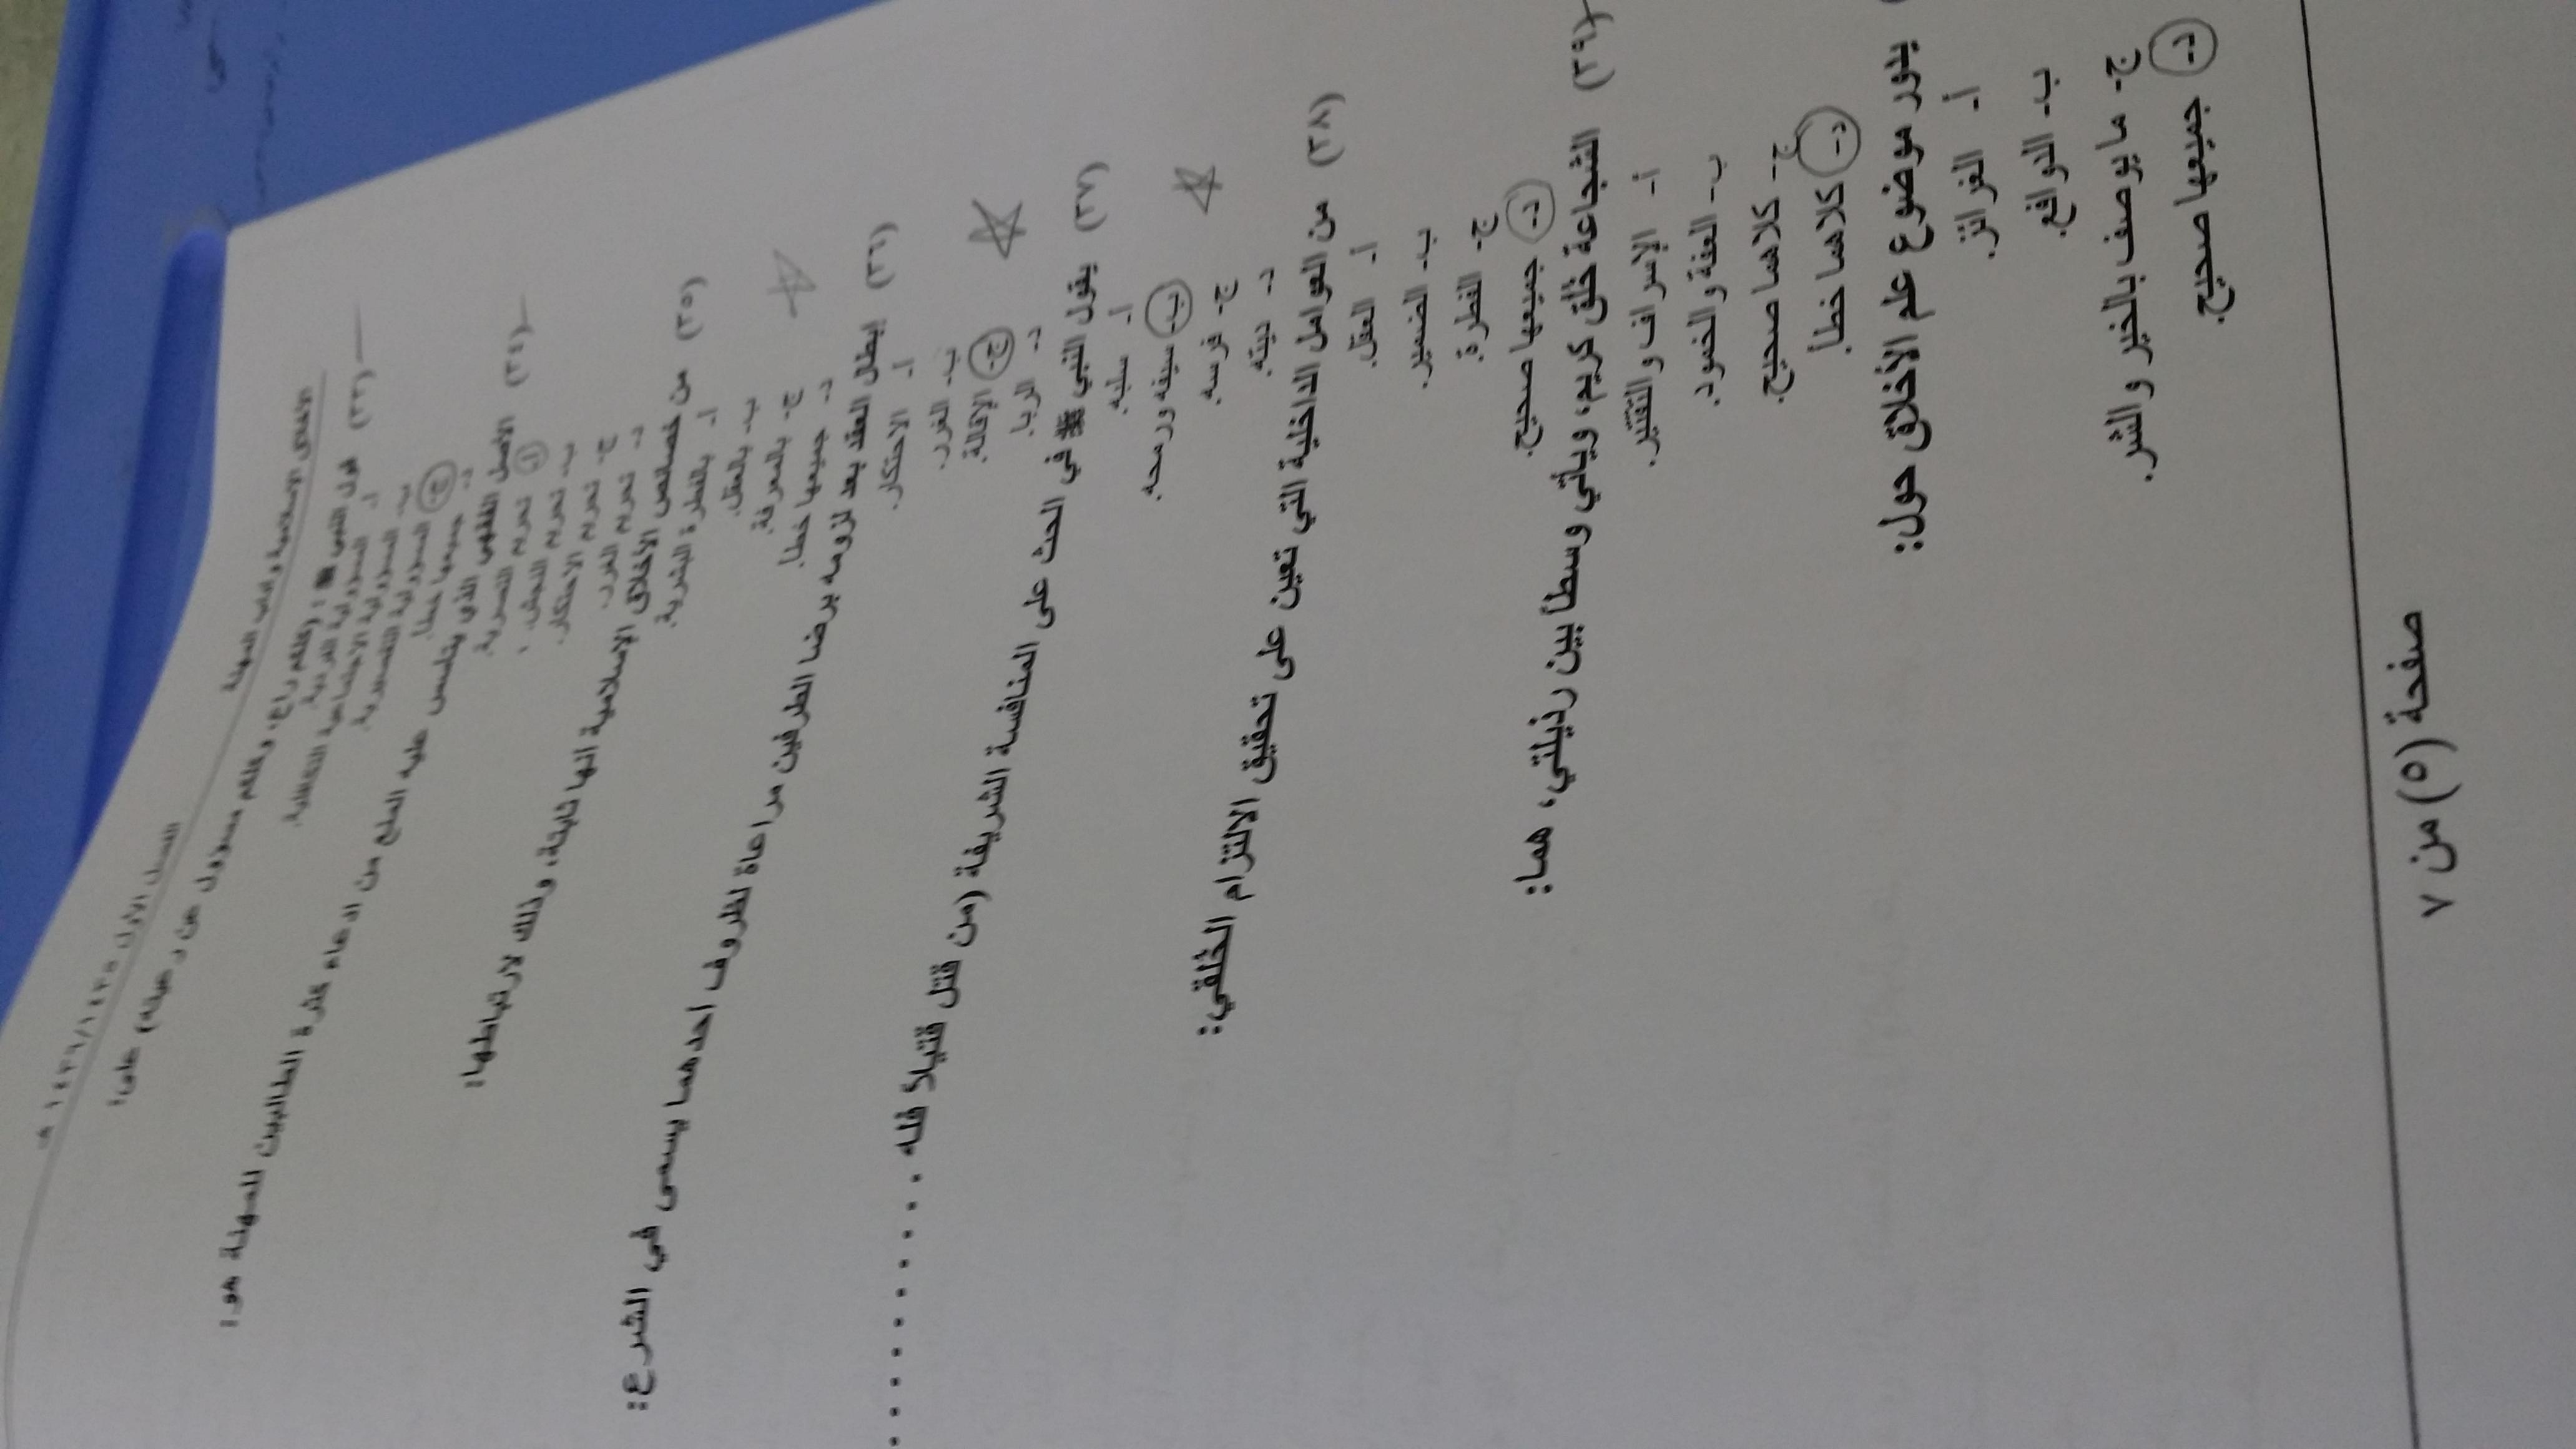 الأخلاق الإسلامية وآداب المهنة
الفصل الأول ١٤٣٥/١٤٣٦ هـ
٢٣) قول النبي ﷺ: (كلكم راع، وكلكم مسؤول عن رعيته) على:
أ- المسؤولية الفردية.
ب- المسؤولية الاجتماعية
ج- المسؤولية التقصيرية.
د- جميعها خطأ.
٢٤) الأصل الفقهي الذي يتأسس عليه المنع من ادعاء كثرة الطالبين للمهنة هو:
أ- تحريم التصرية.
ب- تحريم النجش.
ج- تحريم الاحتكار.
د- تحريم الغرر.
٢٥) من خصائص الأخلاق الإسلامية أنها ثابتة، وذلك لارتباطها:
أ- بالفطرة البشرية.
ب- بالعقل.
ج- بالمعرفة.
د- جميعها خطأ.
٢٦) إبطال العقد بعد لزومه برضا الطرفين مراعاة لظروف أحدهما يسمى في الشرع:
أ- الاحتكار.
ب- الغرر.
ج- الإقالة.
د- الربا.
يقول النبي ﷺ في الحث على المنافسة الشريفة (من قتل قتيلاً فله ............
أ- سلبه.
ب- سيفه ورمحه.
ج- فرسه.
د- ديته.
٢٨) من العوامل الداخلية التي تعين على تحقيق الالتزام الخُلقي:
أ- العقل.
ب- الضمير.
ج- الفطرة.
د- جميعها صحيح.
٢٩) الشجاعة خُلق كريم، ويأتي وسطاً بين رذيلتي، هما:
أ- الإسراف والتقتير.
ب- العفة والخمود.
ج- كلاهما صحيح.
د- كلاهما خطأ.
يدور موضوع علم الأخلاق حول:
أ- الغرائز.
ب- الدوافع.
ج- ما يوصف بالخير والشر.
د- جميعها صحيح.
صفحة (٥) من ٧